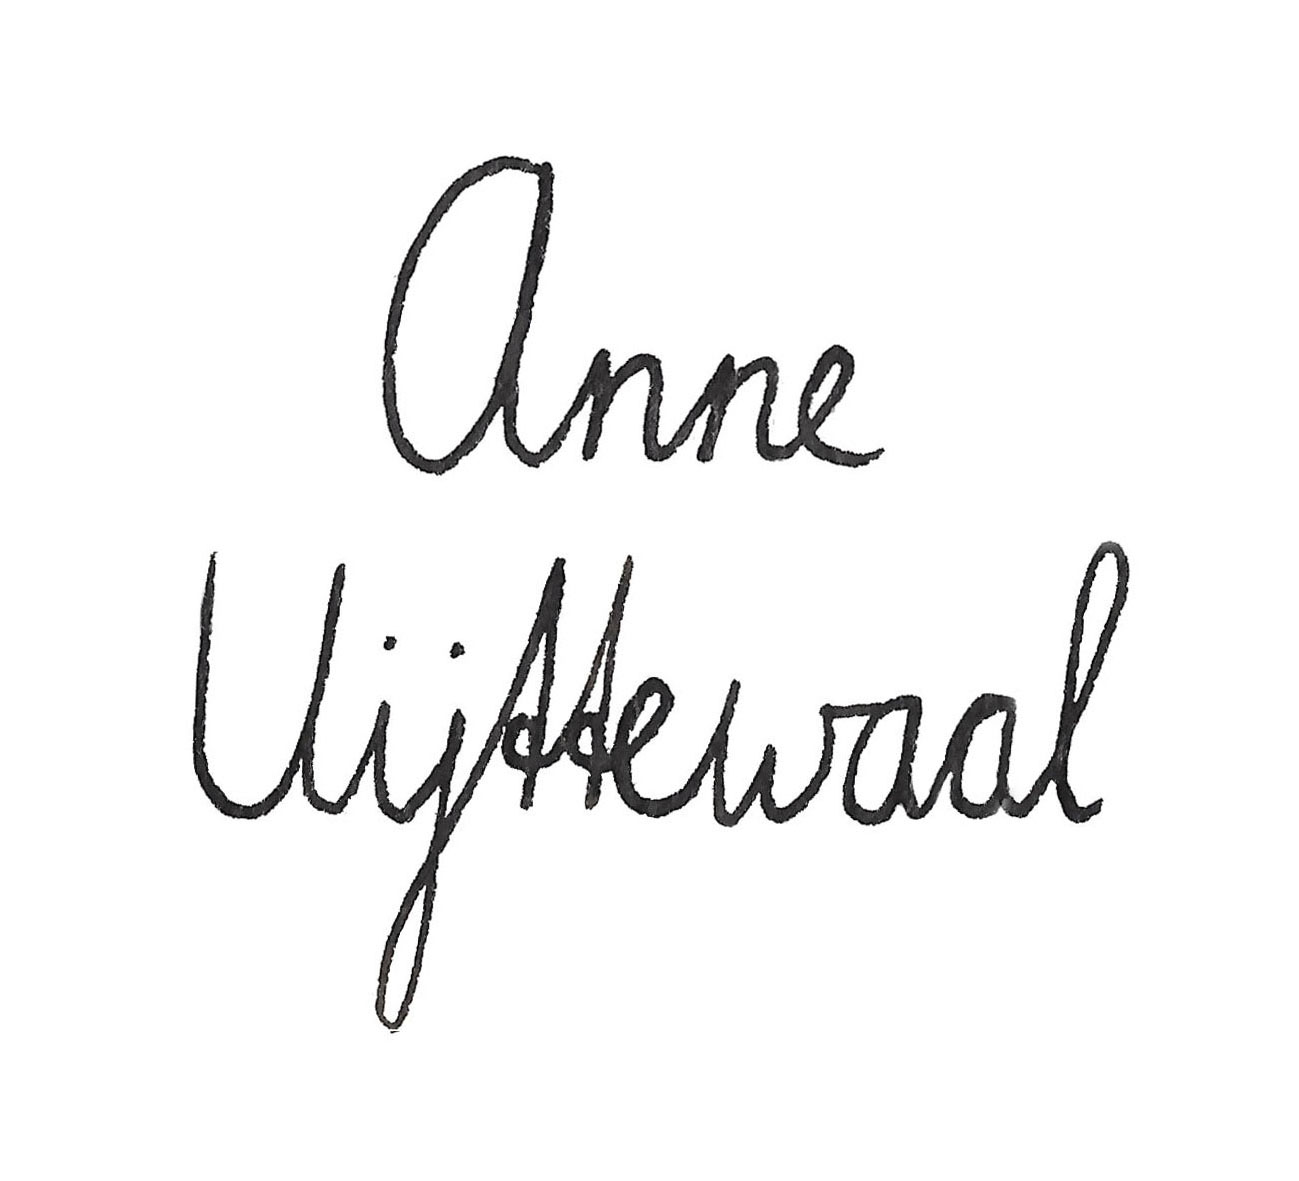 Anne
Uijttewaal